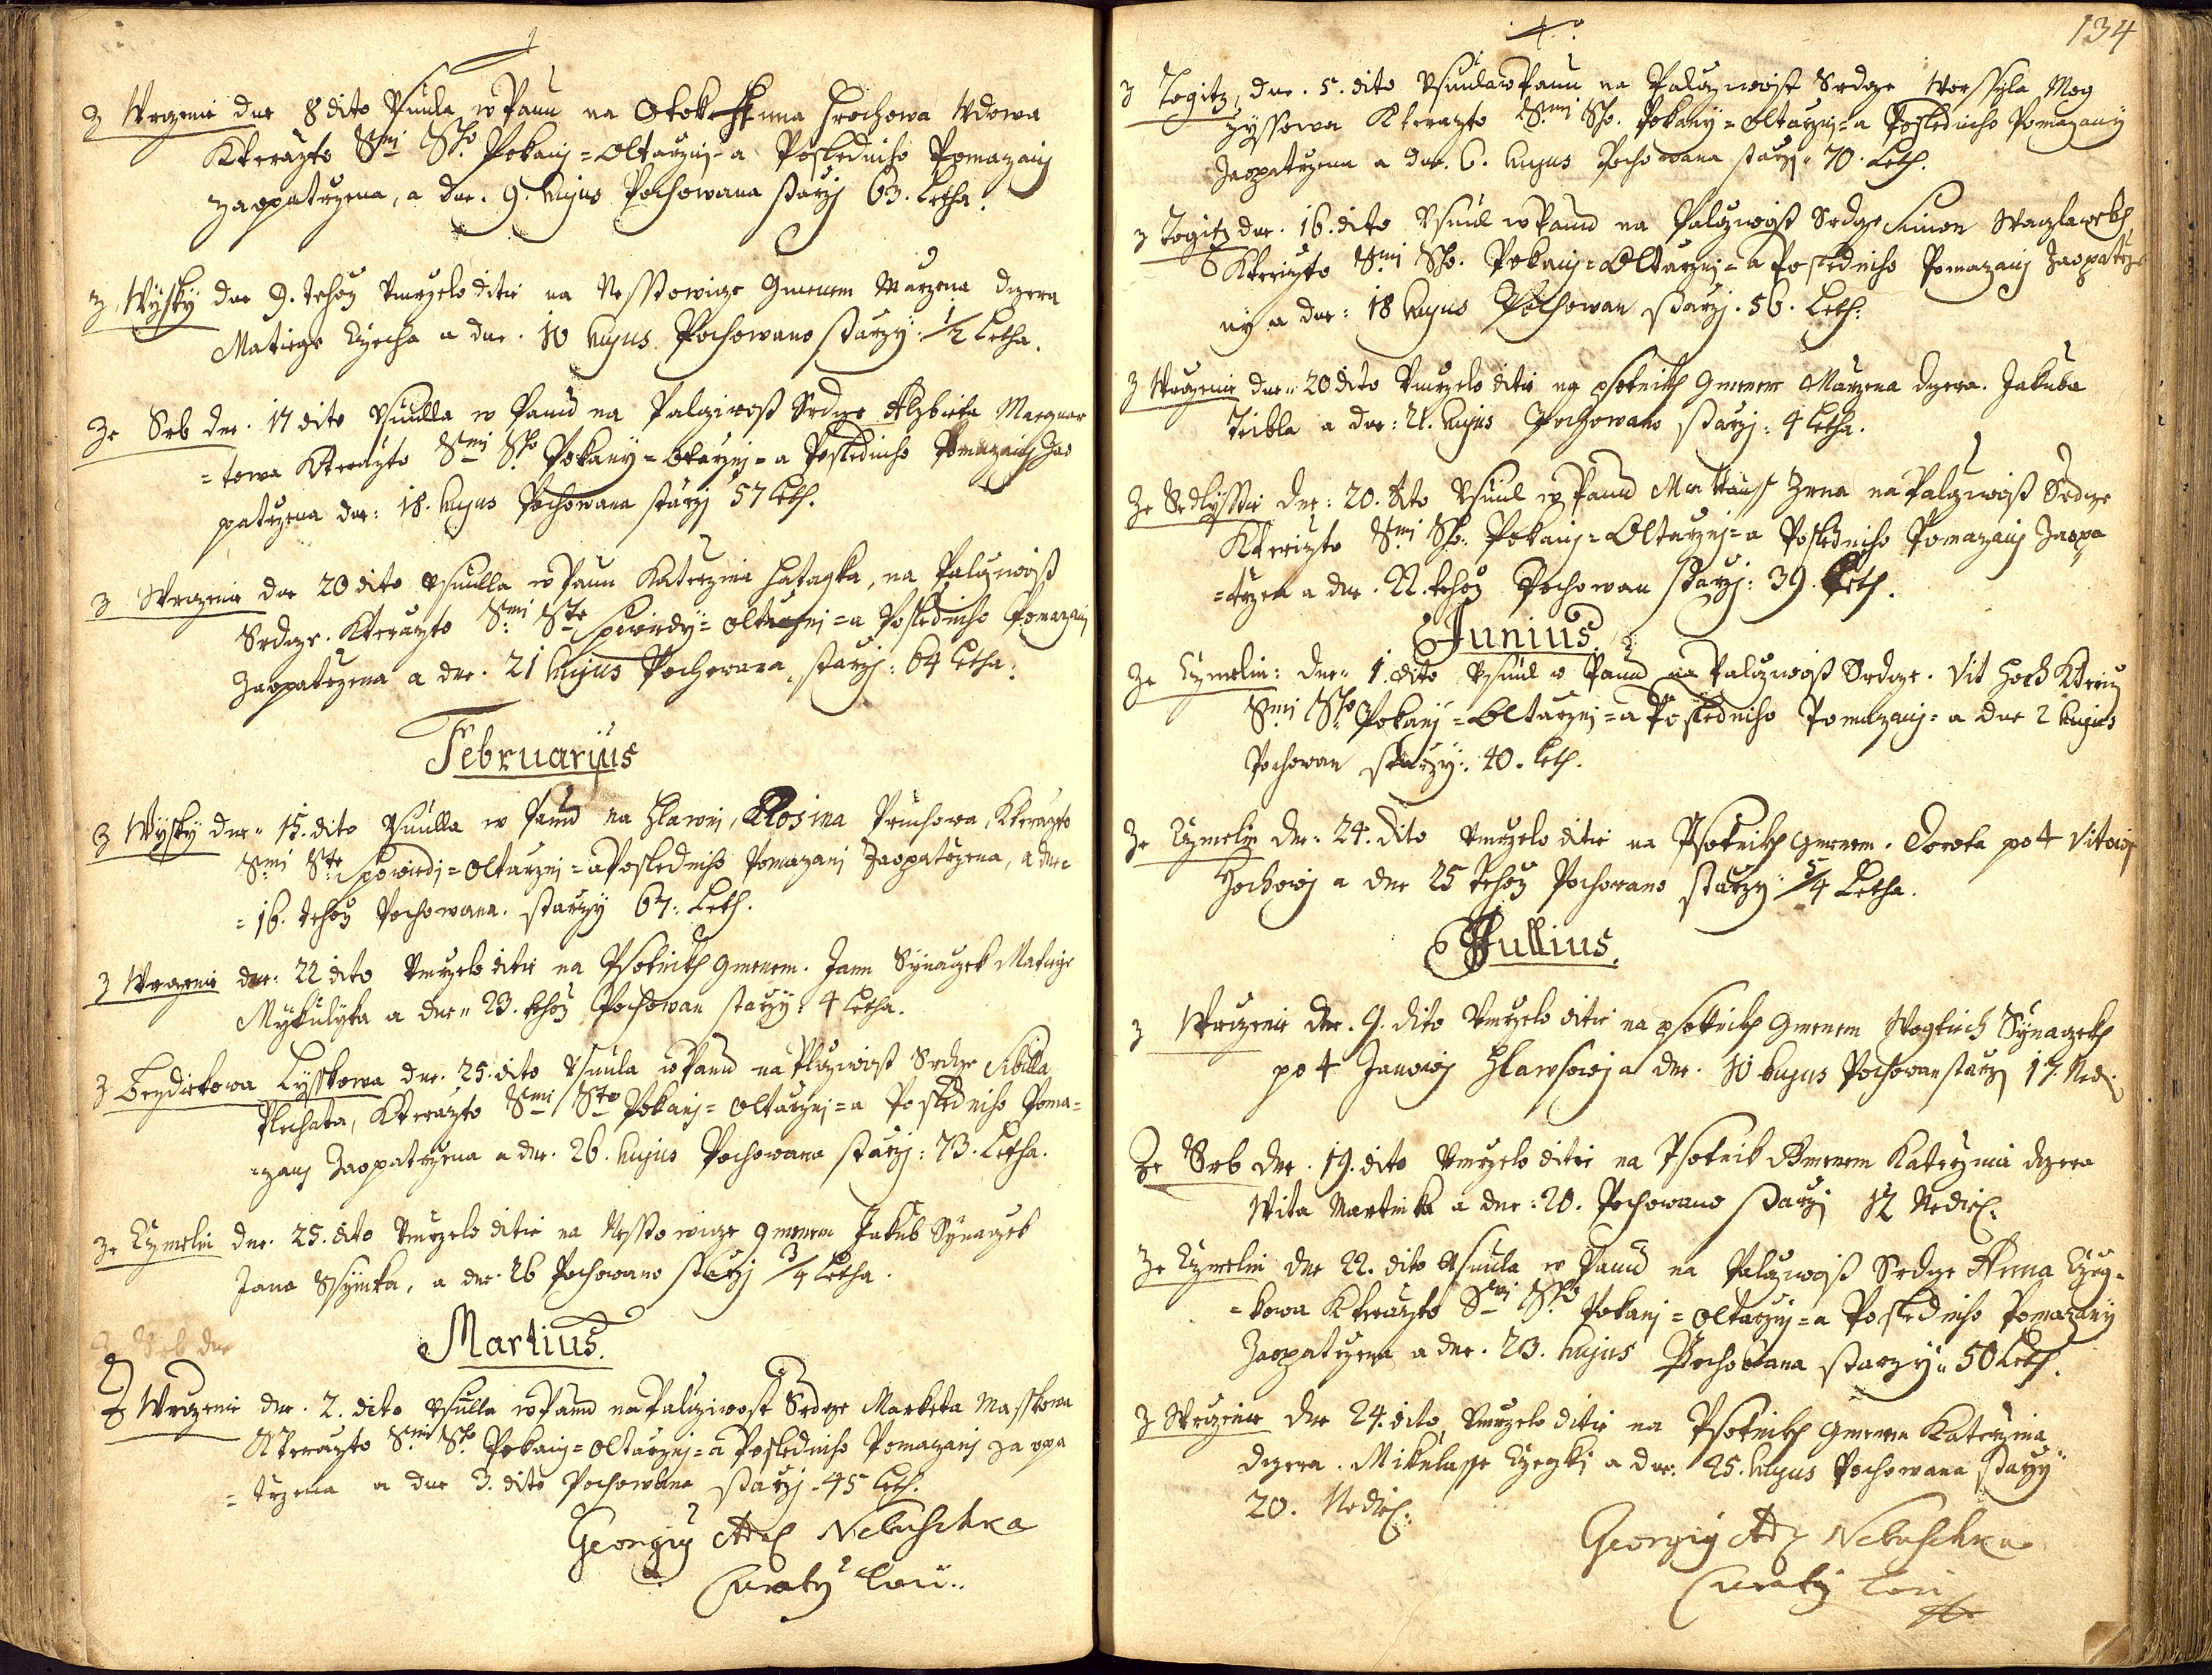 Z Wrzenie dne 8 dito Usnula w Panu na Otok Anna Hrochowa Wdowa
Kterazto Smi Sho. Pokanj = Oltarznj = a Posledniho Pomazanj
Zaopatrzena, a dne. 9. hujus Pochowana starzj 63. Letha.
Z Wysky dne 9. tehoz Umrzelo ditie na Nesstowicze Gmenem Marzena dczera
Matiege a dne. 10 hujus Pochowano starzy: 1/2 Letha.
Ze Srb dne. 17 dito Usnulla w Panu na Palcziwost Srdcze Alzbieta Margnar
= towa Kterazto Smi Sho Pokany = Oltarznj = a Posledniho Pomazanj Zao
patrzena dne: 18. hujus Pochowana starzj 57 Leth.
Z Wrzenie dne 20 dito Usnulla w Panu Katerzina Hatagka, na Palcziwost
Srdcze. Kterazto Smi Ste Spowiedy = Oltarznj = a Posledniho Pomazanj
Zaopatrzena a dne. 21 hujus Pochowana, starzj: 64 Letha.
Februarius
Z Wysky dne 15. dito Usnulla w Panu na Hlawu, Rosina Pruchowa, Kterazto
Smi Ste Spowiedj = Oltarznj = a Posledniho Pomazanj Zaopatrzena, a dne
= 16. tehoz Pochowana. starzy 67. Leth.
Z Wrzenie dne: 22 dito Umrzelo ditie na Psotnik Gmenem. Jann Synaczek Matiege
Mykulyka a dne 23. tehoz Pochowan starzy: 4 Letha.
Z Beydiekowa Lysskowa dne. 25. dito Usnula w Panu na Plcziwost Srdcze Sibilla
Plechata, Kterazto Smi Sto Pokanj = Oltarznj = a Posledniho Poma=
=zanj Zaopatrzena a dne. 26. hujus Pochowana starzj: 73. Letha.
Ze Czmelin dne. 25. dito Umrzelo ditie na Nesstowicze Gmenem Jakub Synaczek
Jana Ssymka, a dne. 26 Pochowano starzj 3/4 Letha.
Martius.
Z Wrzenie dne. 2. dito Usnulla w Panu na Palcziwost Srdcze Marketa Masskowa
Kterazto Smi Sho Pokanj = Oltarznj = a Posledniho Pomazanj Zaopa
= trzena a dne 3. dito Pochowana starzj. 45 Leth.
Georgius Nebuschka
Curatus
134
Z Togitz, dne. 5. dito Usnula w Panu na Palcziwost Srdcze Worssyla Mog
zyssowa Kterazto Smi Sho. Pokany = Oltarznj = a Posledniho Pomazany
Zaopatrzena a dne. 6. hujus Pochowana starzj 70. Leth.
Z Togitz dne. 16. dito Usnul w Panu na Palcziwost Srdcze Simon Waczlawek
Kterizto Smi Sho. Pokanj = Oltarznj = a Posledniho Pomazanj Zaopatrze
ny a dne: 18 hujus Pochowan starzj. 56. Leth:
Z Wrzenie dne 20 dito Umrzelo ditie na Psotnik Gmenem Marzena dczera. Jakuba
Teibla a dne: 21. hujus Pochowano starzj: 4 Letha.
Ze Sedlysstie dne: 20. dito Usnul w Panu Mattaus Zena na Palcziwost Srdcze
Kterizto Smi Sho. Pokanj = Oltarznj = a Posledniho Pomazanj Zaopa
=trzen a dne. 22. tehoz Pochowan starzj: 39. Leth.
Junius.
Ze Czmelin: dne 1. dito Usnul w Panu na Palcziwost Srdcze. Vit Hoch Kteriz
Smi Sho Pokanj = Oltarznj = a Posledniho Pomazanj = a dne 2 hujus
Pochowan starzy: 40. Leth.
Ze Czmelin dne: 24. dito Umrzelo ditie na Psotnik Gmenem. Dorota po + Vitowj
Hochowj a dne 25 tehoz Pochowano starzy 5/4 Letha.
Jullius.
Z Wrzenie dne. 9. dito Umrzelo ditie na Psotnik Gmenem Wogtiech Synaczek
po + Janowj Hlawsowj a dne. 10 hujus Pochowan starzj 17. Ned:
Ze Srb dne. 19. dito Umrzelo ditie na Psotnik Gmenem Katerzina dczera
Wita Martinka a dne: 20. Pochowano starzj 12 Nediel:
Ze Czmelin dne 22. dito Usnula w Panu na Palcziwost Srdcze Anna Czeg=
=kowa Kterazto Smi Sho Pokanj = Oltarznj = a Posledniho Pomazany
Zaopatrzena a dne. 23. hujus Pochowana starzy 50 Leth.
Z Wrzenie dne 24. dito Umrzelo ditie na Psotnik Gmenem Katerzina
dczera. Mikulasse Czegky a dne. 25. hujus Pochowana starzy
20. Nediel:
Georgius Nebuschka
Curatus